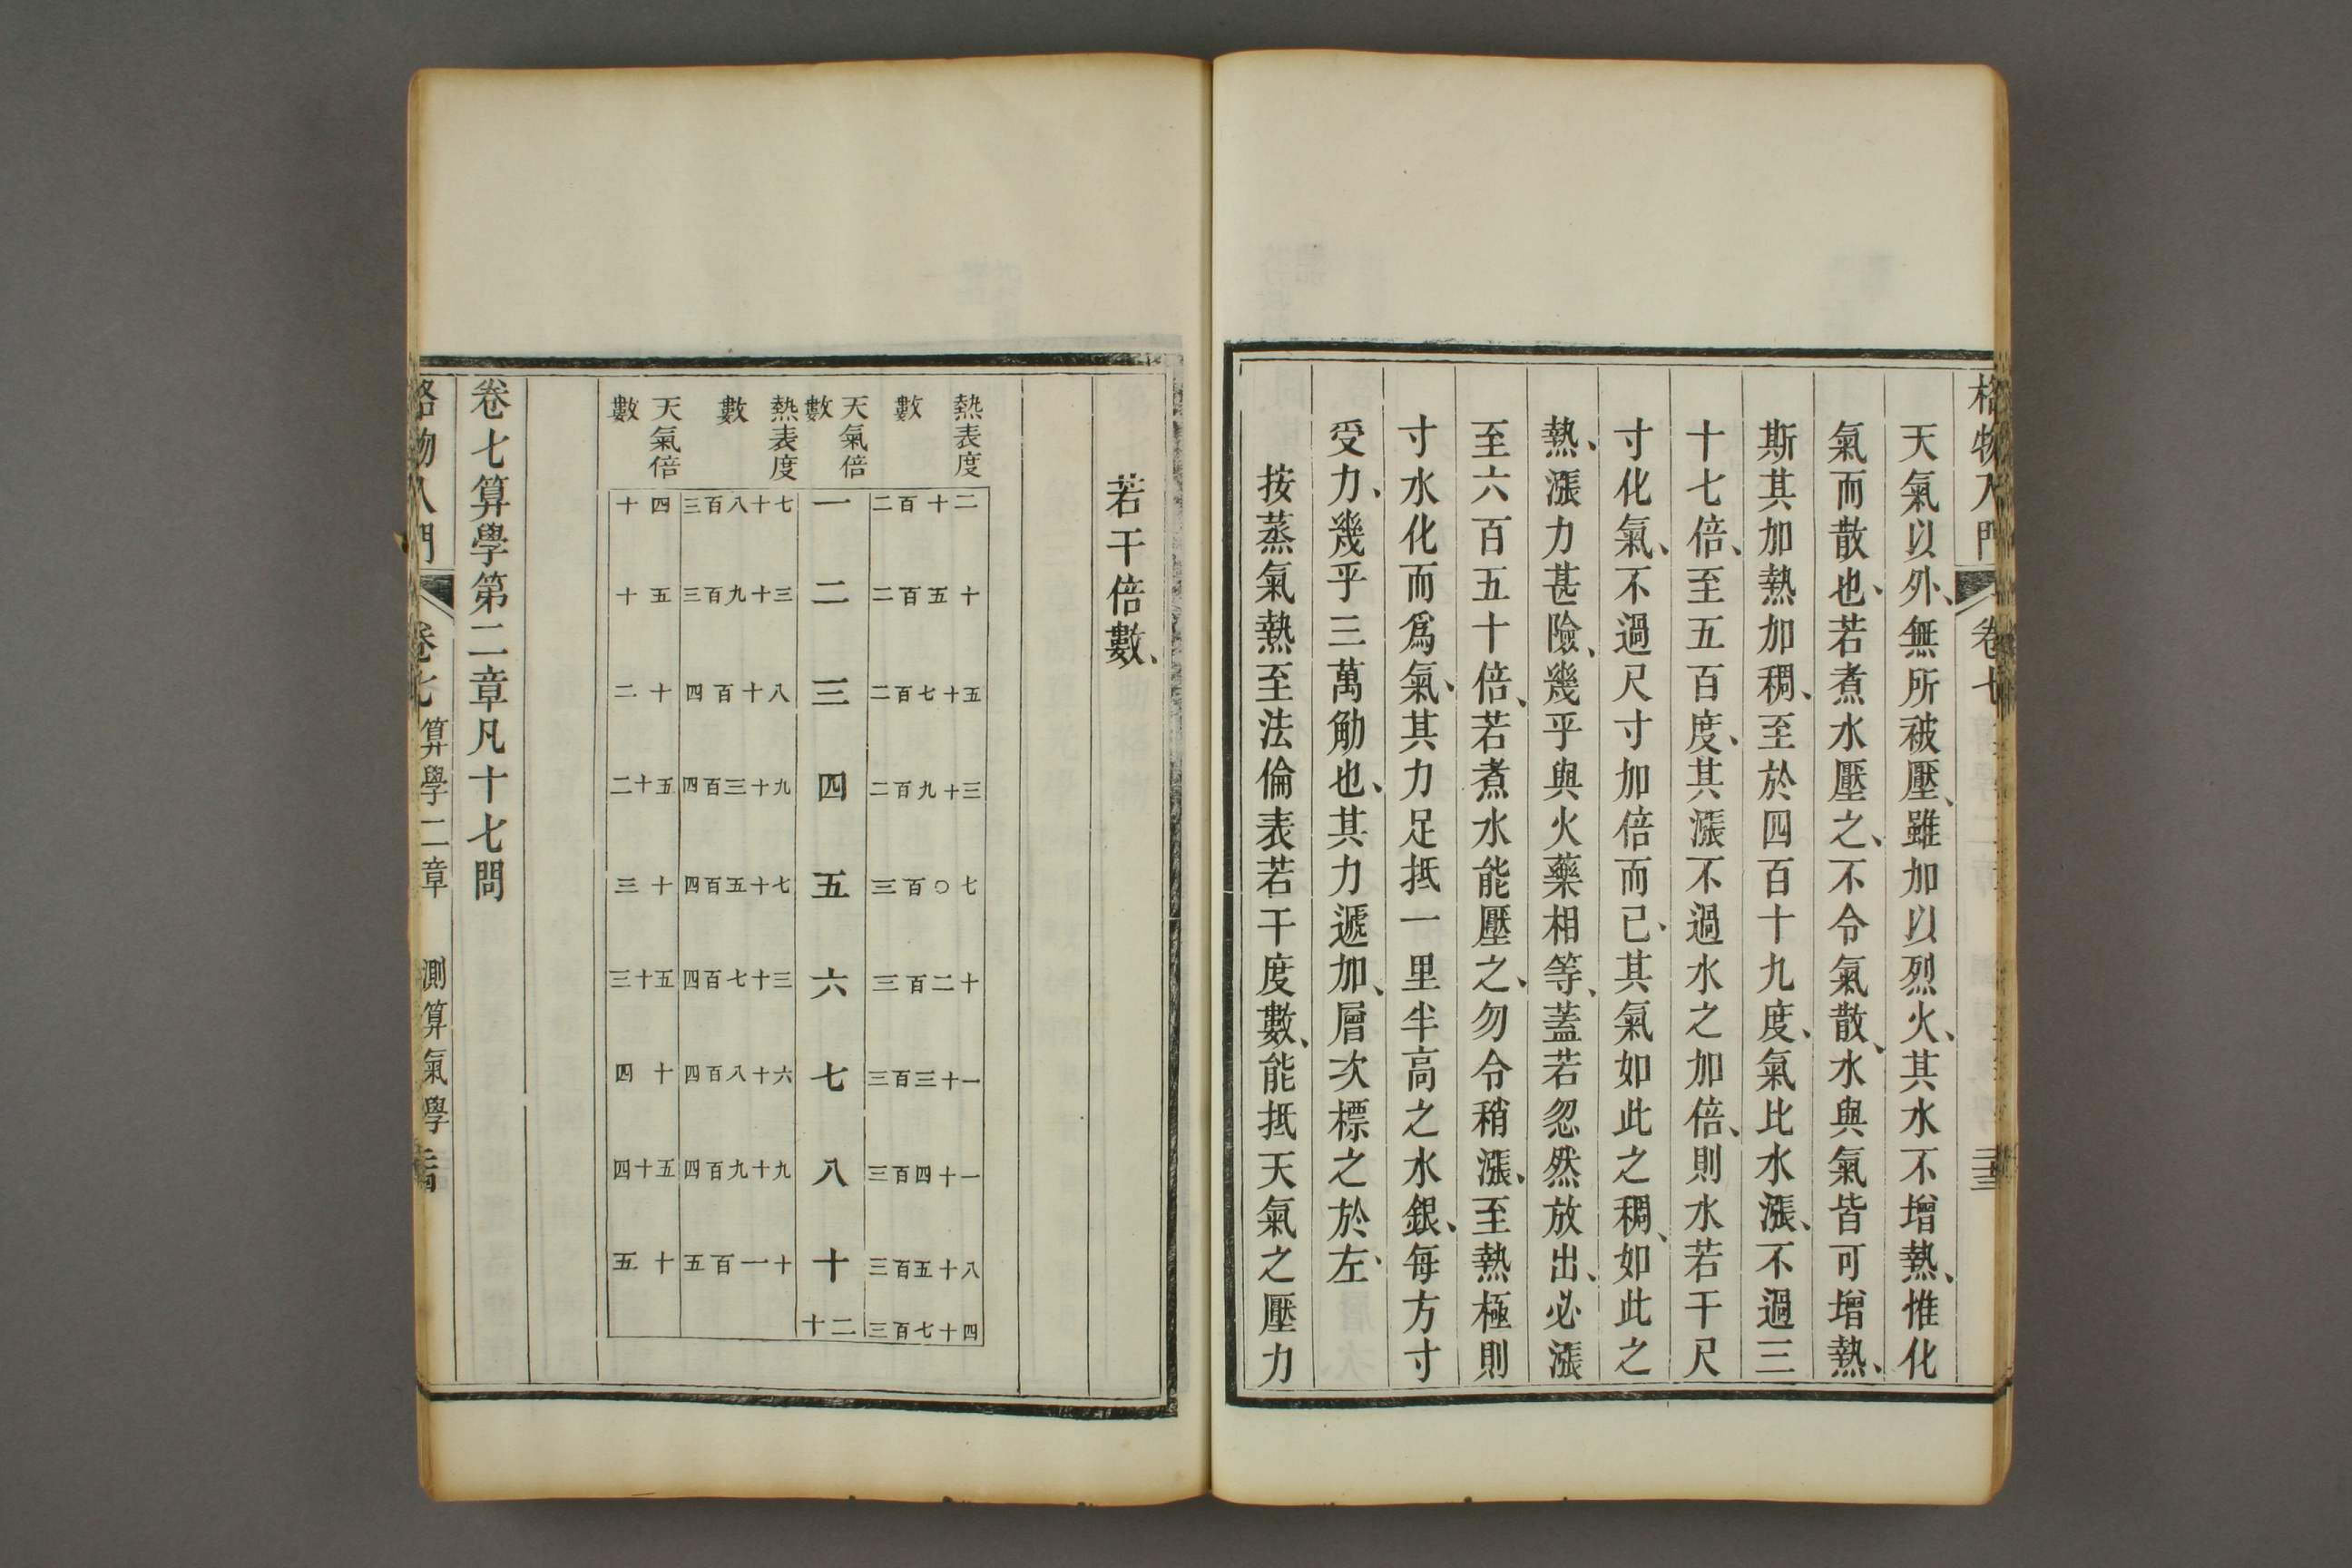 格物入門 卷七
天氣以外、無所被壓、雖加以烈火、其水不增熱、惟化
氣而散也、若煮水壓之、不令氣散、水與氣皆可增熱、
斯其加熱加稠、至於四百十九度、氣比水漲、不過三
十七倍、至五百度、其漲不過水之加倍、則水若干尺
寸化氣、不過尺寸加倍而已、其氣如此之稠、如此之
熱、漲力甚險、幾乎與火藥相等、蓋若忽然放出、必漲
至六百五十倍、若煮水能壓之、勿令稍漲、至熱極則
寸水化而爲氣、其力足抵一里半高之水銀、每方寸
受力、幾乎三萬觔也、其力遞加、層次標之於左、
按蒸氣熱至法倫表若干度數、能抵天氣之壓力
若干倍數、
熱表度數
二百十二
二百五十
二百七十五
二百九十三
三百〇七
三百二十
三百三十一
三百四十一
三百五十八
三百七十四
天氣倍數
一
二
三
四
五
六
七
八
十
十二
熱表度數
三百八十七
三百九十三
四百十八
四百三十九
四百五十七
四百七十三
四百八十六
四百九十九
五百一十
天氣倍數
十四
十五
二十
二十五
三十
三十五
四十
四十五
五十
卷七算學第二章凡十七問
格物入門 卷七 算學二章 測算氣學